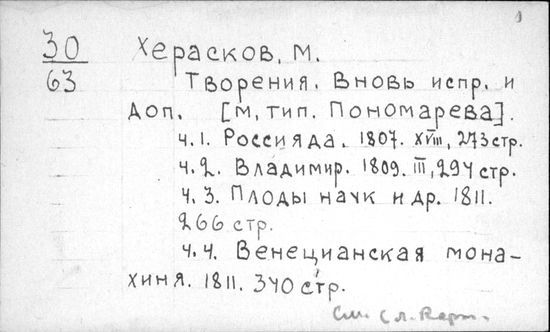 1
30 Херасков, М.
63 Творения. Вновь испр. и
доп. [М, тип. Пономарева].
ч. 1. Россияда. 1807. XVIII, 273 стр.
ч. 2. Владимир. 1809. III, 294 стр.
ч. 3. Плоды наук и др. 1811.
266 стр.
ч. 4. Венецианская мона-
хиня. 1811. 340 стр.
См. сл. карт.